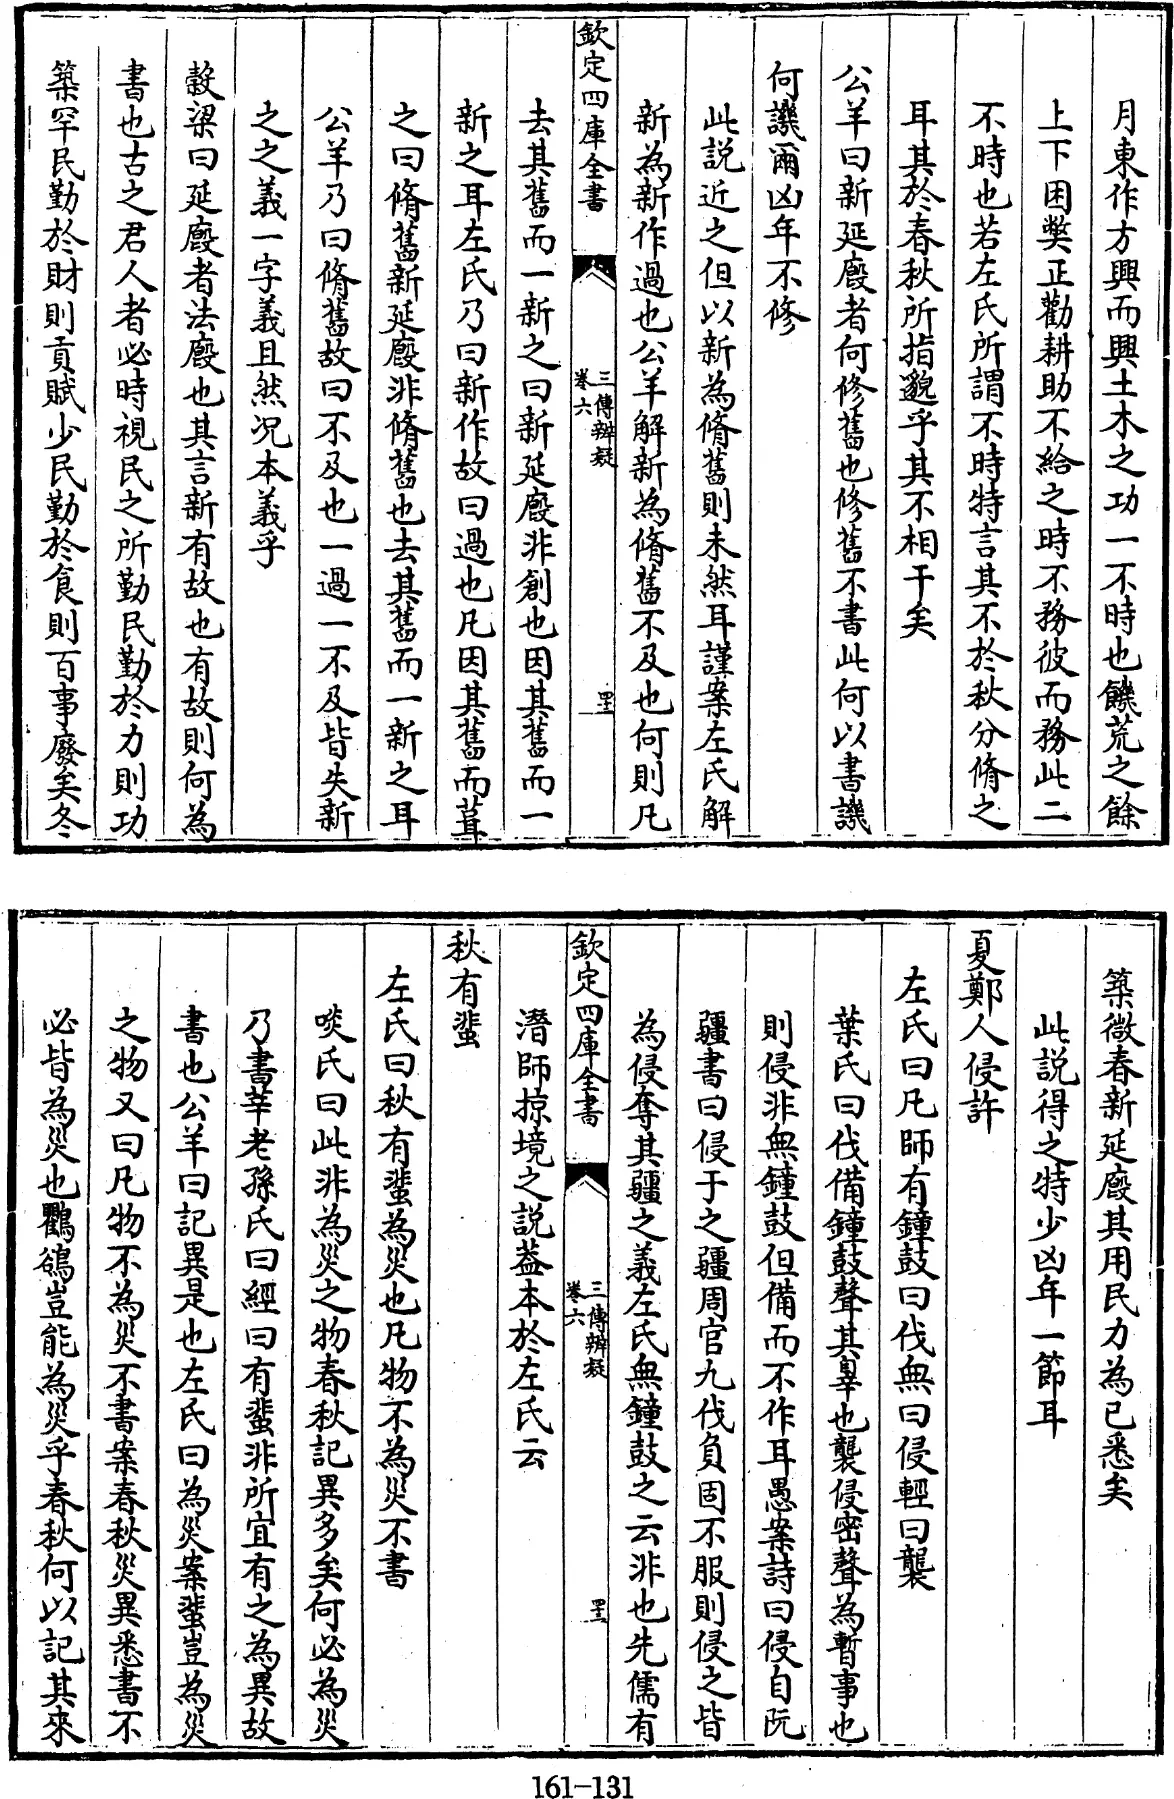 月東作方興而興土木之功一不時也饑荒之餘
上下困獘正勸耕助不給之時不務彼而務此二
不時也若左氏所謂不時特言其不於秋分脩之
耳其於春秋所指邈乎其不相干矣
公羊曰新延廏者何修舊也修舊不書此何以書譏
何譏爾凶年不修
此説近之但以新為脩舊則未然耳謹案左氏解
新為新作過也公羊解新為脩舊不及也何則凡
欽定四庫全書
三傳辨疑
卷六
去其舊而一新之曰新延廏非創也因其舊而一
新之耳左氏乃曰新作故曰過也凡因其舊而葺
之曰脩舊新延廏非脩舊也去其舊而一新之耳
公羊乃曰脩舊故曰不及也一過一不及皆失新
之之義一字義且然况本義乎
穀梁曰延廏者法廏也其言新有故也有故則何為
書也古之君人者必時視民之所勤民勤於力則功
築罕民勤於財則貢賦少民勤於食則百事廢矣冬
築微春新延廏其用民力為已悉矣
此説得之特少凶年一節耳
夏鄭人侵許
左氏曰凡師有鐘鼓曰伐無曰侵輕曰襲
葉氏曰伐備鐘鼓聲其辠也襲侵密聲為暫事也
則侵非無鐘鼓但備而不作耳愚案詩曰侵自阮
疆書曰侵于之疆周官九伐負固不服則侵之皆
為侵奪其疆之義左氏無鐘鼓之云非也先儒有
欽定四庫全書
三傳辨疑
卷六
潛師掠境之説葢本於左氏云
秋有蜚
左氏曰秋有蜚為災也凡物不為災不書
啖氏曰此非為災之物春秋記異多矣何必為災
乃書莘老孫氏曰經曰有蜚非所宜有之為異故
書也公羊曰記異是也左氏曰為災案蜚豈為災
之物又曰凡物不為災不書案春秋災異悉書不
必皆為災也鸜鵒豈能為災乎春秋何以記其來
161-131